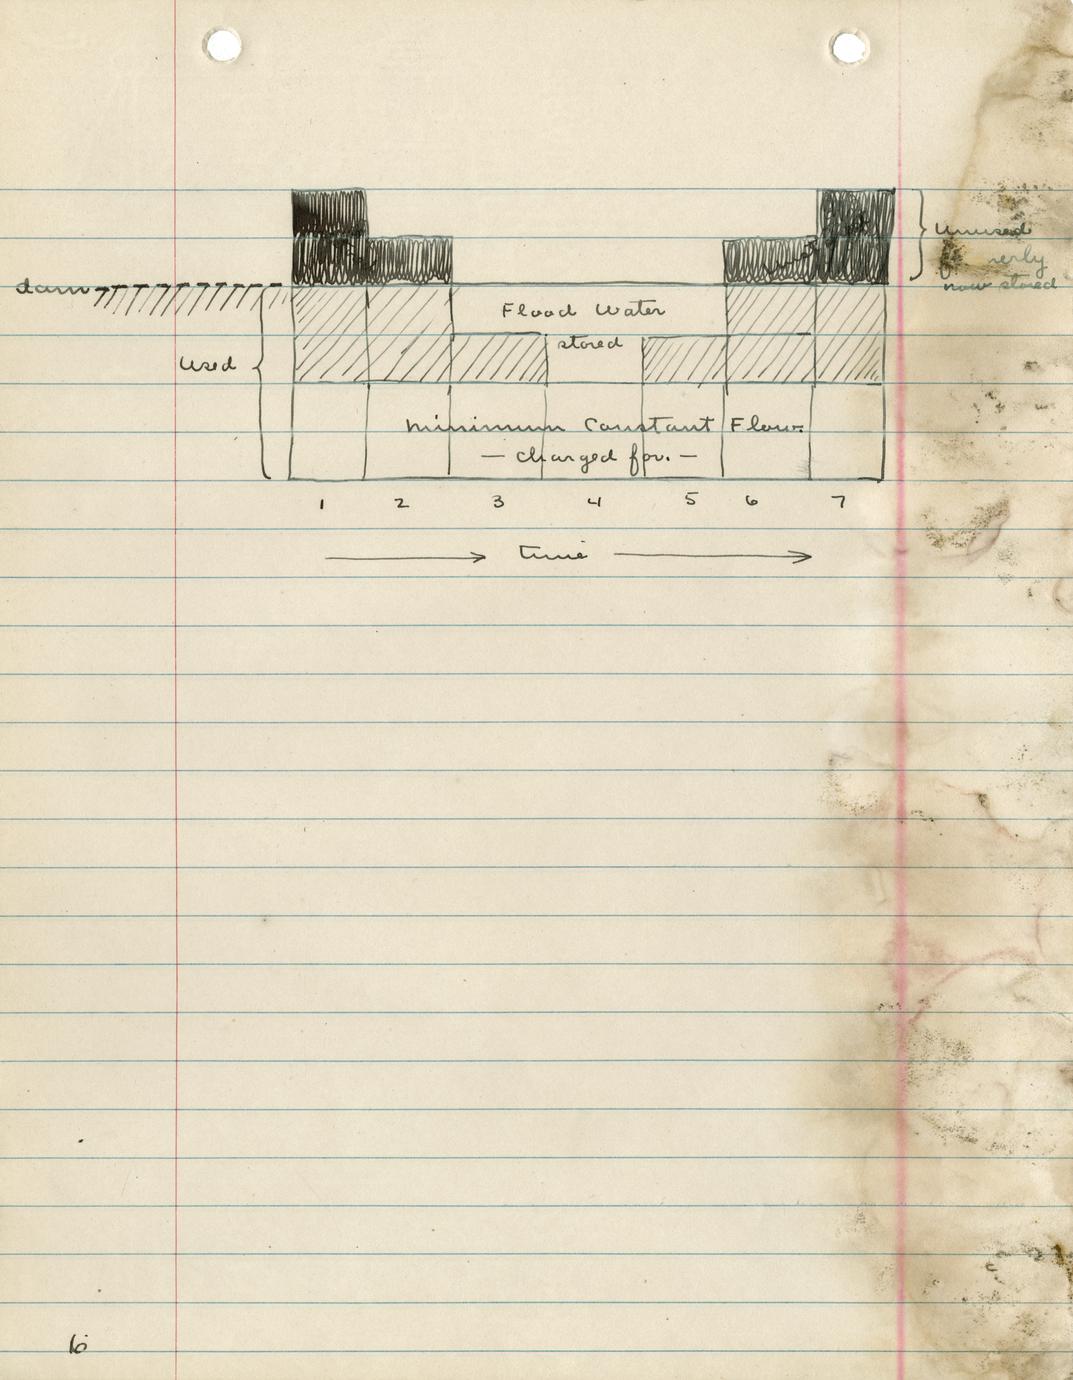 Unused
now stored
dam
Flood Water
stored
Used
Minimum Constant Flow
— charged for. —
1 2 3 4 5 6 7
time
6